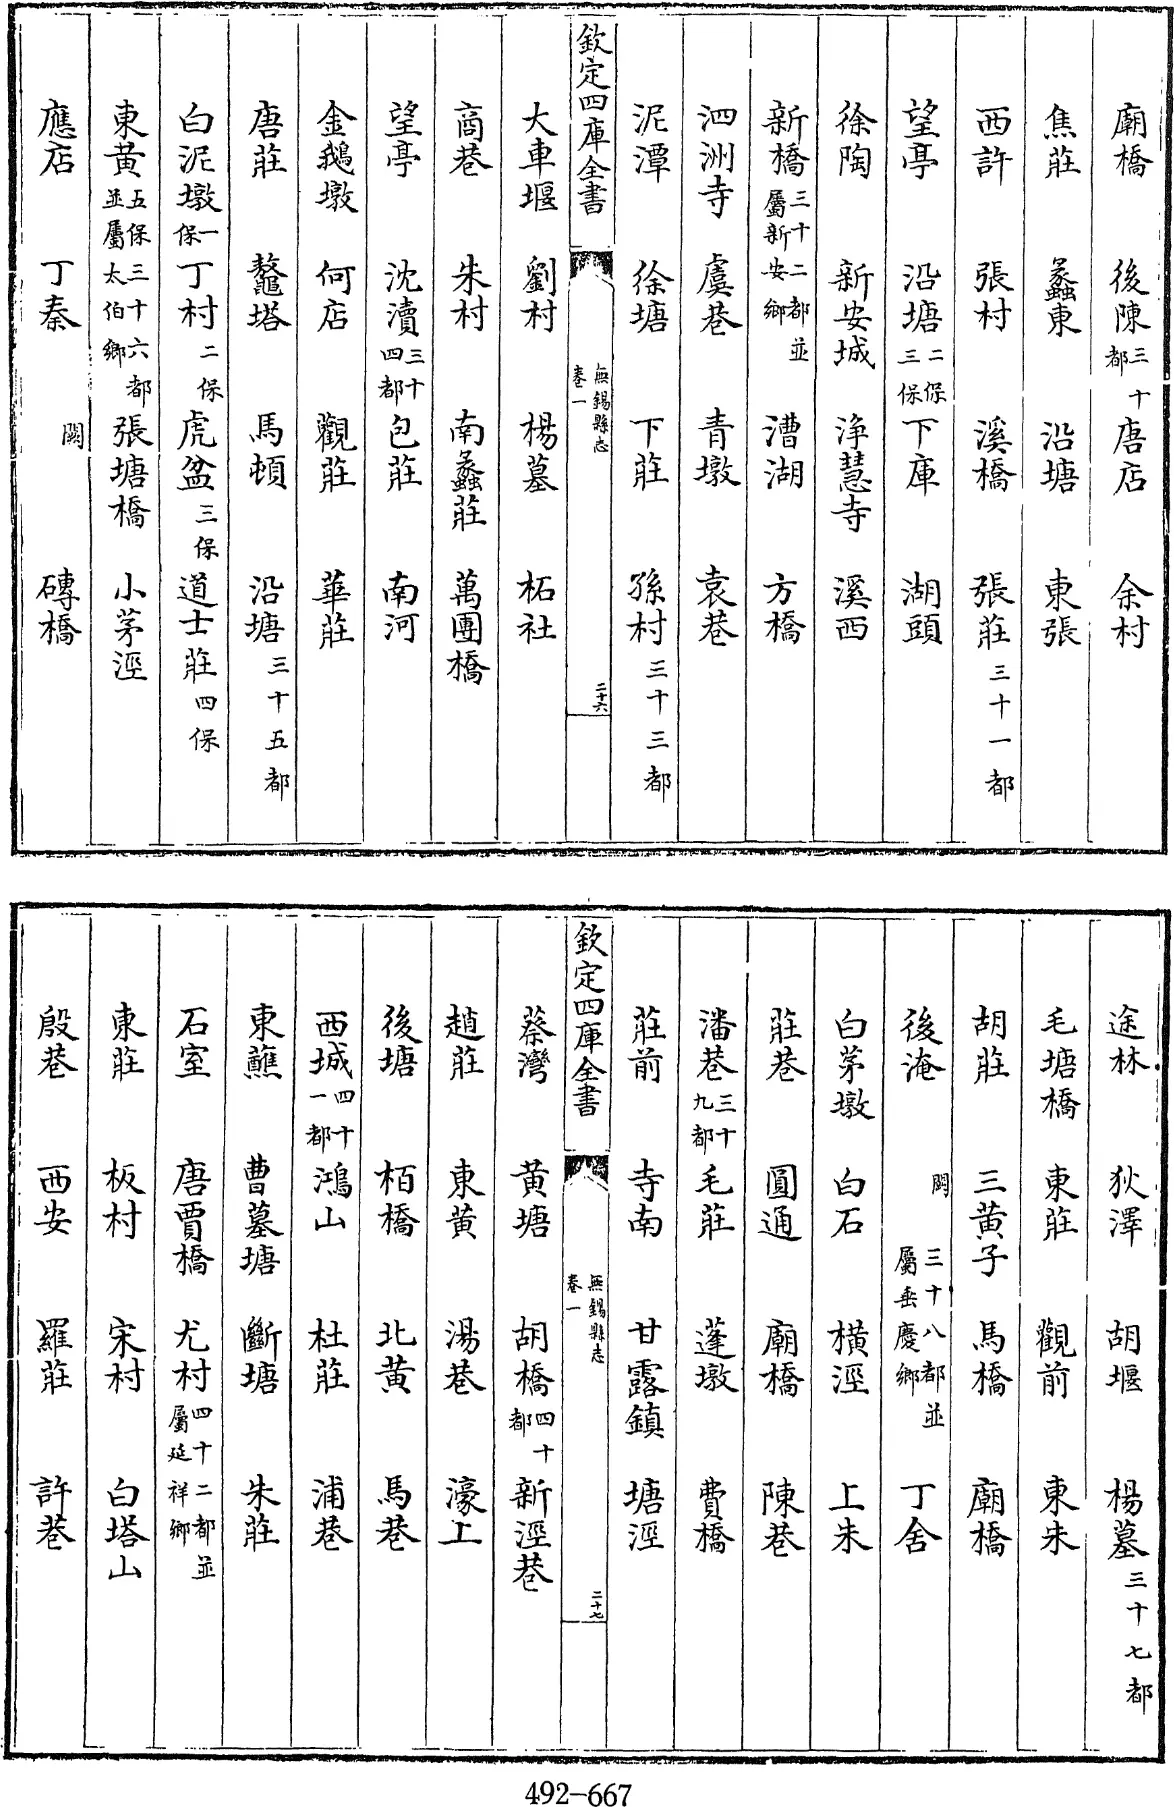 廟橋 後陳三十都 唐店 余村
焦莊 蠡東 沿塘 東張
西許 張村 溪橋 張莊三十一都
望亭 沿塘二保三保 下庫 湖頭
徐陶 新安城 浄慧寺 溪西
新橋三十二都並屬新安鄉 漕湖 方橋
泗洲寺 虞巷 青墩 袁巷
泥潭 徐塘 下莊 孫村三十三都
欽定四庫全書 無錫縣志 卷一 二十六
大車堰 劉村 楊墓 柘社
商巷 朱村 南蠡莊 萬團橋
望亭 沈瀆三十四都 包莊 南河
金鵝墩 何店 觀莊 華莊
唐莊 鼇塔 馬頓 沿塘三十五都
白泥墩一保 丁村二保 虎盆三保 道士莊四保
東黃五保三十六都並屬太伯鄉 張塘橋 小茅涇
應店 丁秦 闕 磚橋
途林 狄澤 胡堰 楊墓三十七都
毛塘橋 東莊 觀前 東朱
胡莊 三黃子 馬橋 廟橋
後淹 闕 三十八都並屬垂慶鄉 丁舍
白茅墩 白石 橫涇 上朱
莊巷 圓通 廟橋 陳巷
潘巷三十九都 毛莊 蓬墩 費橋
莊前 寺南 甘露鎮 塘涇
欽定四庫全書 無錫縣志 卷一 二十七
蔡灣 黃塘 胡橋四十都 新涇巷
趙莊 東黃 湯巷 濠上
後塘 栢橋 北黃 馬巷
西城四十一都 鴻山 杜莊 浦巷
東蘸 曹墓塘 斷塘 朱莊
石室 唐賈橋 尤村四十二都並屬延祥鄉
東莊 板村 宋村 白塔山
殷巷 西安 羅莊 許巷
492-667